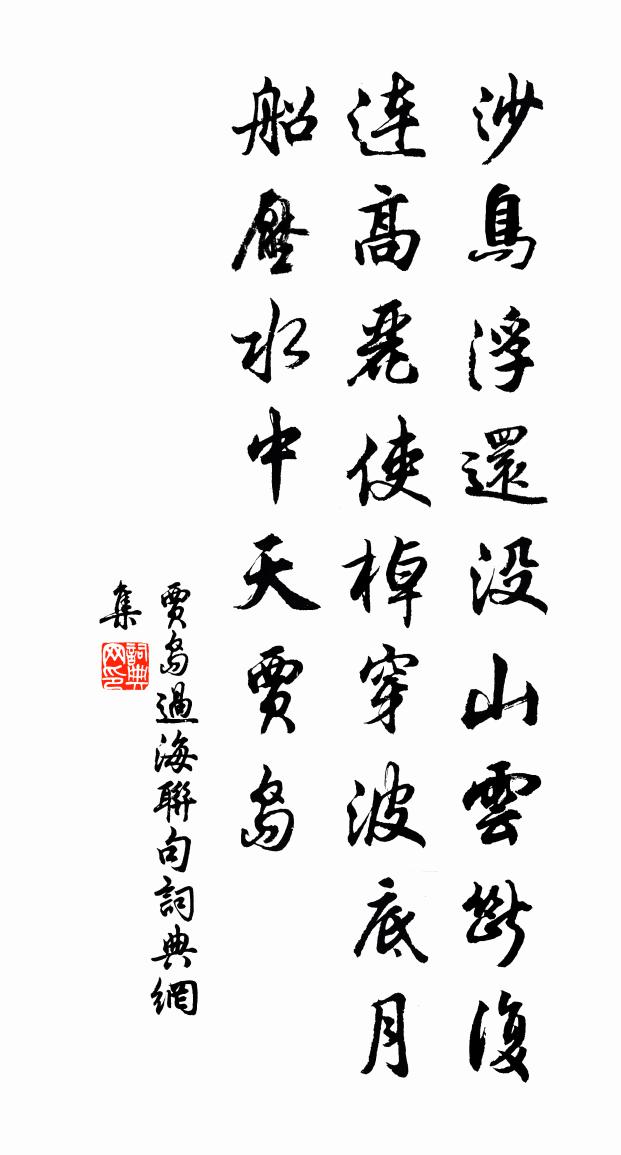 沙鳥浮還没山雲斷復
連高麗使棹穿波底月
船壓水中天賈島
賈島過海聯句詞典網
集
詞典
网印